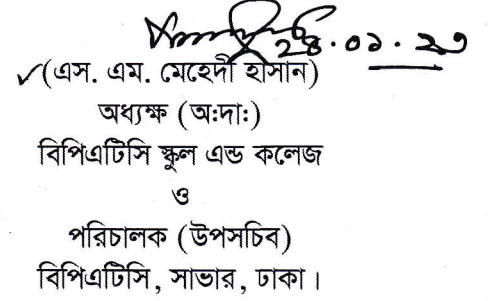 ২৪.০১.২৩
✓(এস. এম. মেহেদী হাসান)
অধ্যক্ষ (অ:দা:)
বিপিএটিসি স্কুল এন্ড কলেজ
ও
পরিচালক (উপসচিব)
বিপিএটিসি, সাভার, ঢাকা।